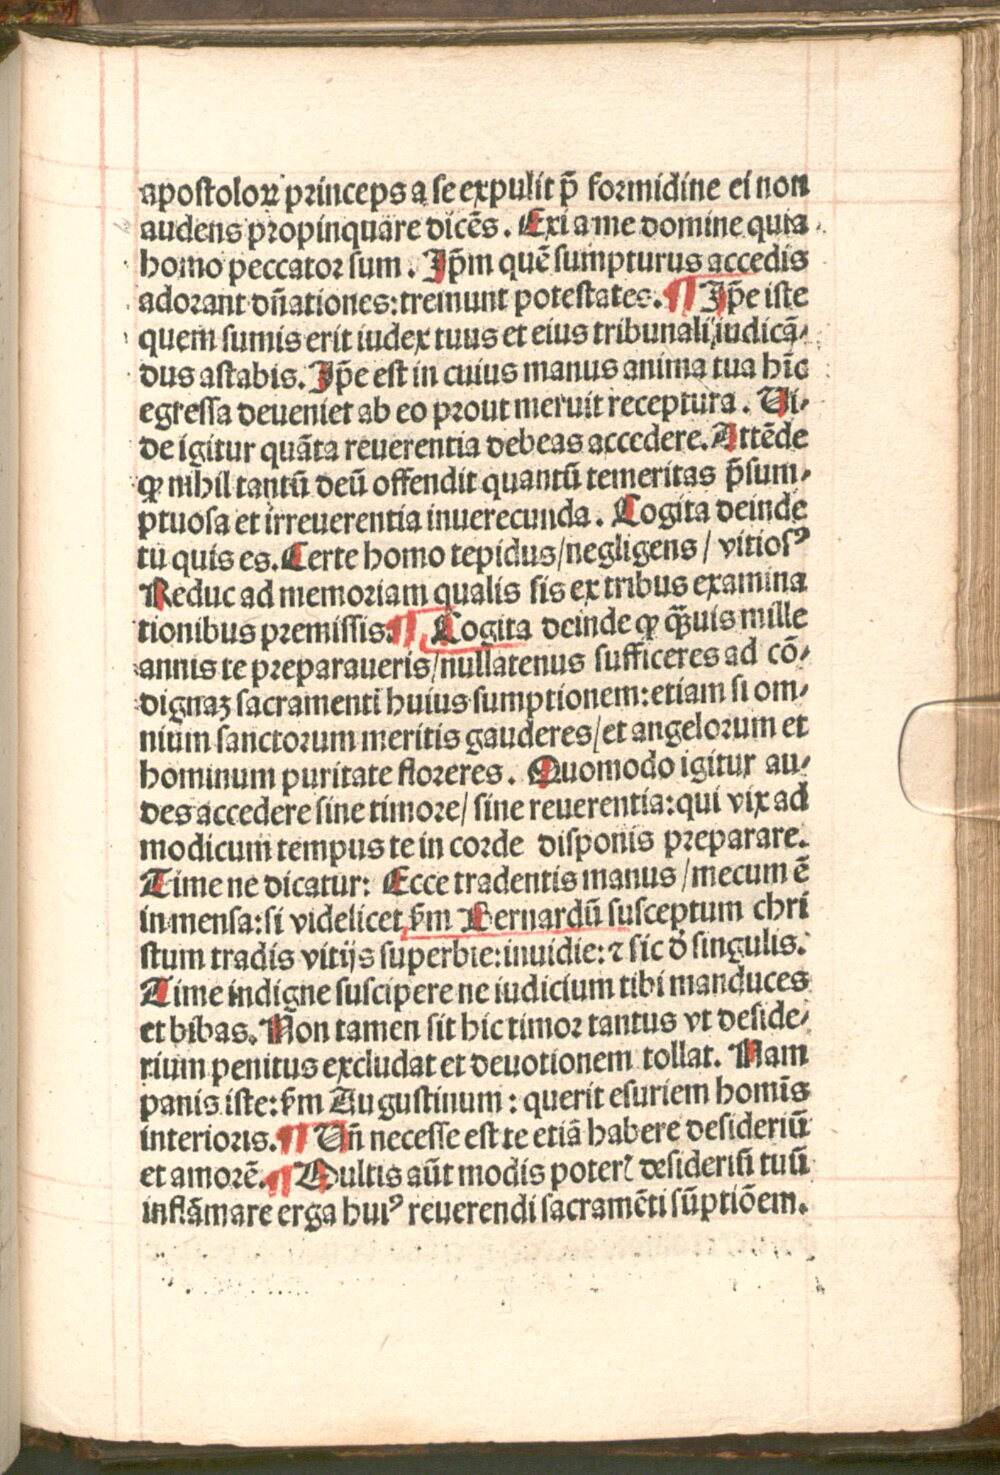 apostoloꝝ princeps a se expulit p̄ formidine ei non
audens propinquare dicēs. Exi a me domine quia
homo peccator sum. Ip̄m quē sumpturus accedis
adorant dn̄ationes:tremunt potestates. ¶ Ip̄e iste
quem sumis erit iudex tuus et eius tribunali iudicā⸗
dus astabis. Ip̄e est in cuius manus anima tua hīc
egressa deueniet ab eo prout meruit receptura. Ui⸗
de igitur quāta reuerentia debeas accedere. Attēde
ꝙ nihil tantū deū offendit quantū temeritas p̄sum⸗
ptuosa et irreuerentia inuerecunda. Cogita deinde
tu quis es. Certe homo tepidus/negligens/ vitiosꝰ
Reduc ad memoriam qualis sis ex tribus examina
tionibus premissis. ¶ Cogita deinde ꝙ qᷓuis mille
annis te preparaueris/nullatenus sufficeres ad cō⸗
dignaꝫ sacramenti huius sumptionem:etiam si om⸗
nium sanctorum meritis gauderes/et angelorum et
hominum puritate floreres. Quomodo igitur au⸗
des accedere sine timore/ sine reuerentia:qui vix ad
modicum tempus te in corde disponis preparare.
Time ne dicatur: Ecce tradentis manus/mecum ē
in mensa:si videlicet ẜm Bernardū susceptum chri
stum tradis vitijs superbie:inuidie:⁊ sic ð singulis.
Time indigne suscipere ne iudicium tibi manduces
et bibas. Non tamen sit hic timor tantus vt deside⸗
rium penitus excludat et deuotionem tollat. Nam
panis iste:ẜm Augustinum: querit esuriem homīs
interioris. ¶ Un̄ necesse est te etiā habere desideriū
et amorē. ¶ Multis aūt modis poterꝭ desideriū tuū
inflāmare erga huiꝰ reuerendi sacramēti sūptiōem.